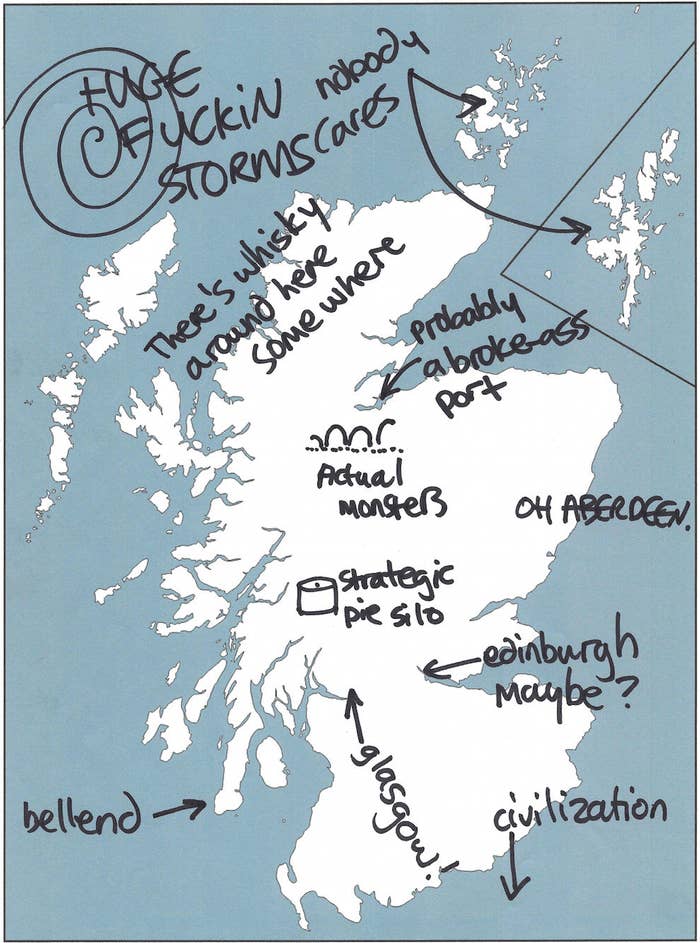 HUGE
FUCKIN
STORMS
nobody
cares
There's whisky
around here
some where
probably
a broke-ass
port
Actual
monsters
OH ABERDEEN.
strategic
pie silo
edinburgh
maybe?
glasgow!
bellend
civilization